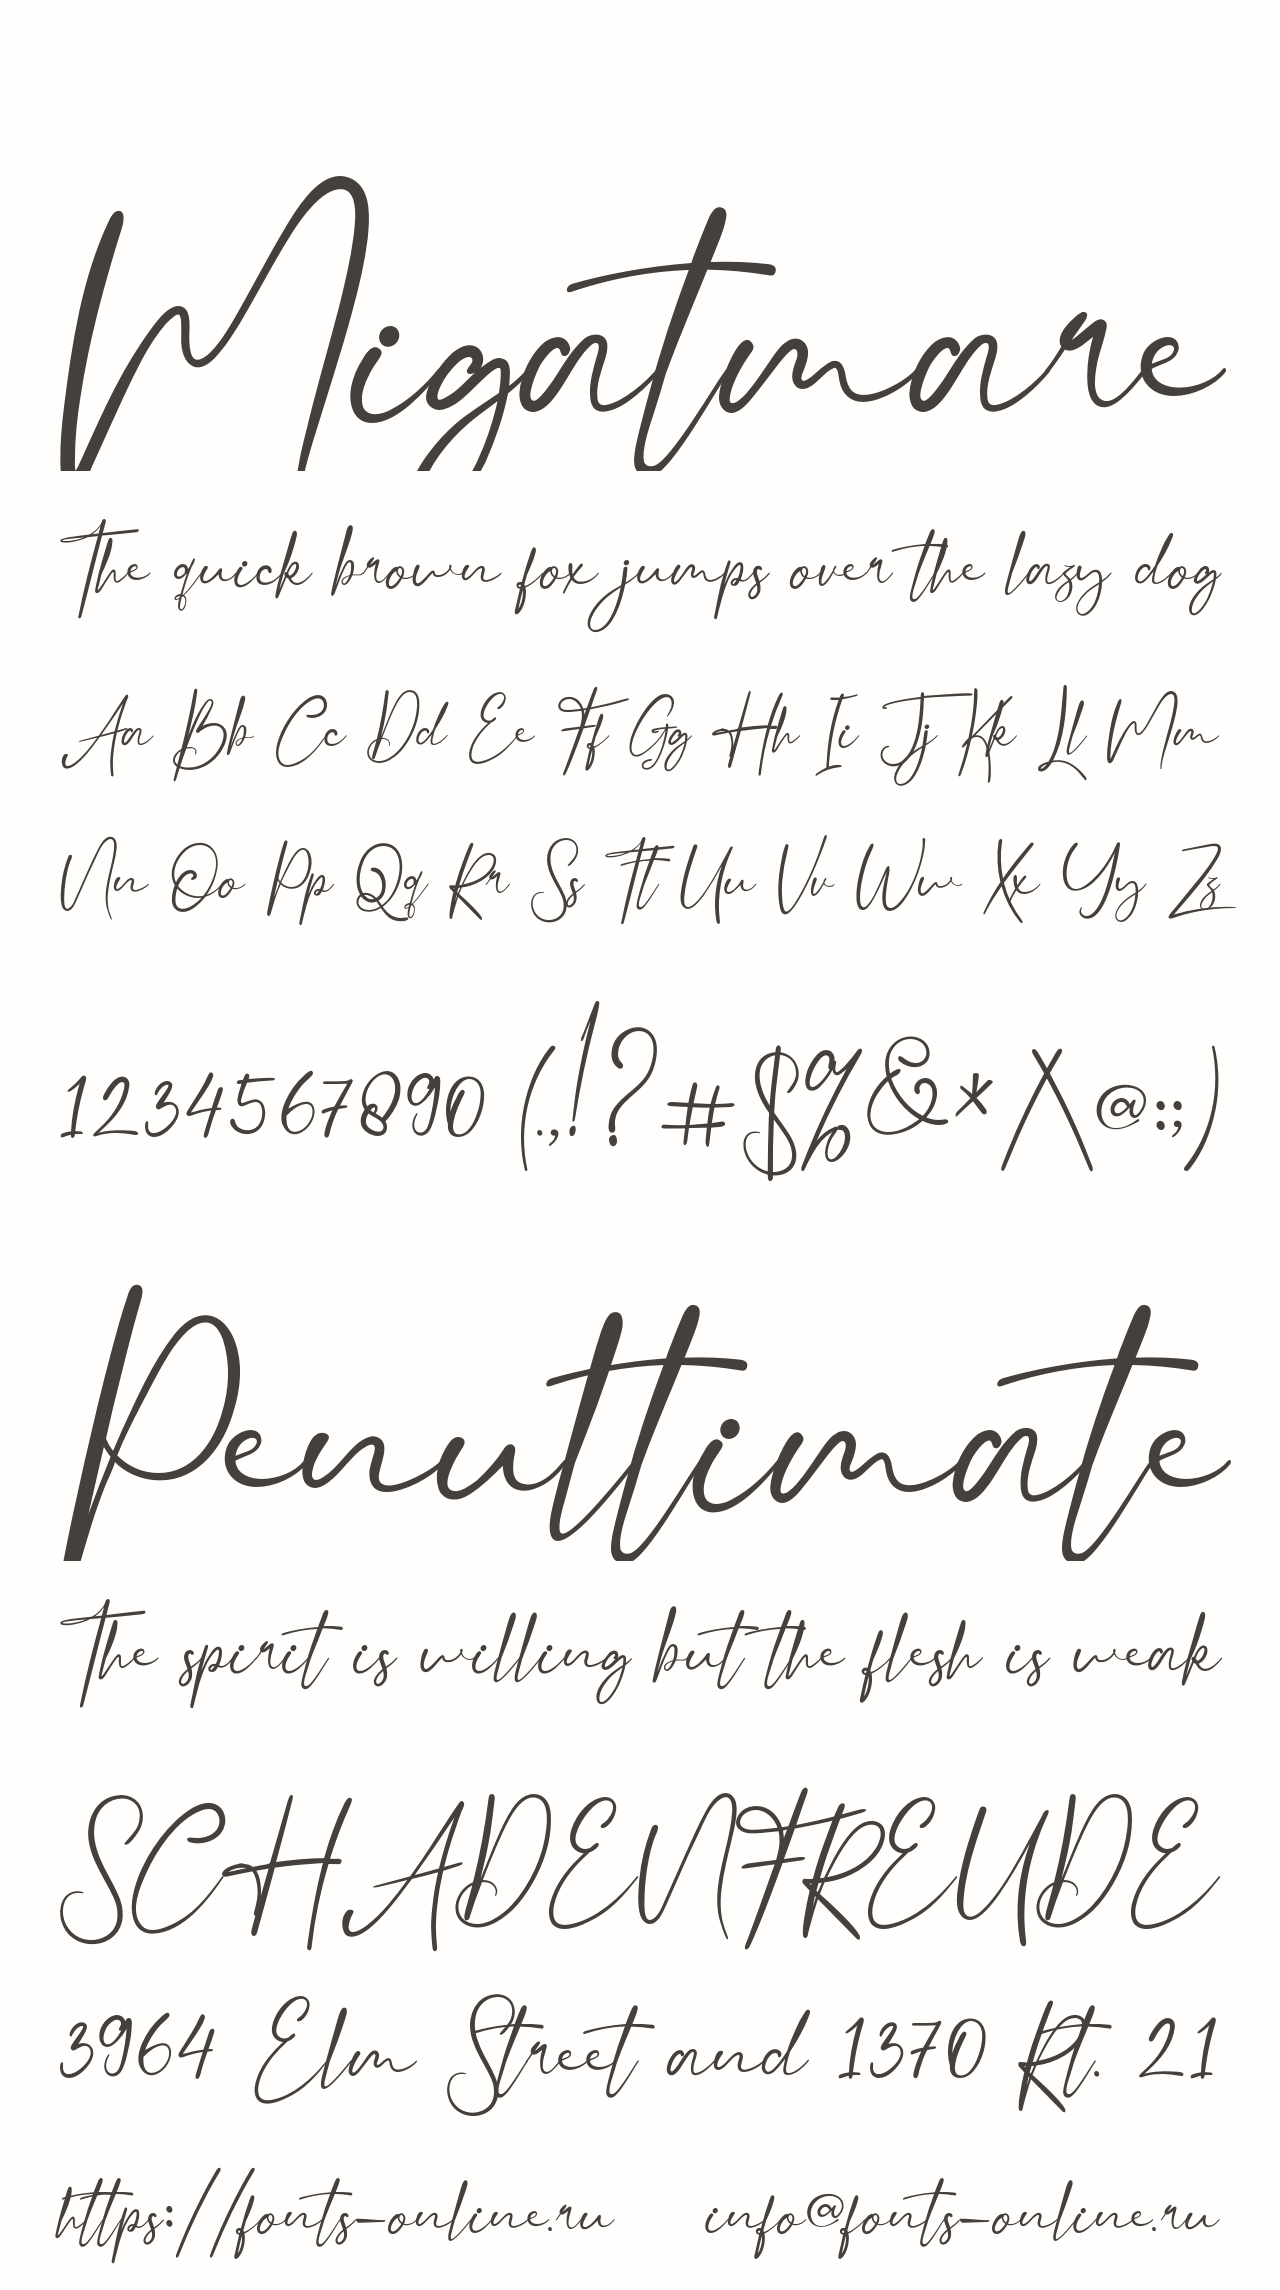 Migatmare
The quick brown fox jumps over the lazy dog
Aa Bb Cc Dd Ee Ff Gg Hh Ii Jj Kk Ll Mm
Nn Oo Pp Qq Rr Ss Tt Uu Vv Ww Xx Yy Zz
1234567890 (.,!?#$%&*/\@:;)
Penultimate
The spirit is willing but the flesh is weak
SCHADENFREUDE
3964 Elm Street and 1370 Rt. 21
https://fonts-online.ru info@fonts-online.ru